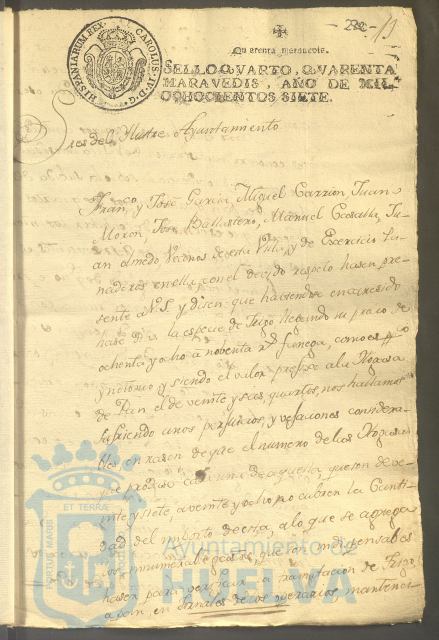 - 292 - / 1
HISPANIARUM REX. CAROLUS IV D. G.
Quarenta maravedis.
SELLO QVARTO, QVARENTA
MARAVEDIS, AÑO DE MIL
OCHOCIENTOS SIETE.
Sres del Ilustre Ayuntamiento
Franco, y José García, Miguel Carrion, Juan
Moron, José Ballestero, Manuel
an olmedo Vecinos de esta Villa, y de Exercicio Pa-
naderos en ella, con el devido respeto hasen pre-
sente a V.S. y disen: que haviendose encaresido
hase la especie de Trigo llebando su precio de
ochenta y ocho a nobenta rs. fanega, como es pco.
y notorio y siendo el valor prefixo a la Hogasa
de Pan, el de veinte y seis quartos, nos hallamos
sufriendo unos perjuicios, y vejaciones considera-
bles en rason de que el numero de las Hogasas
que produse cada una de aquella, que son de ve-
inte y siete, a veinte y ocho no cubren la Canti-
dad del importe de esta, a lo que se agrega
los innumerables gastos, que son indispensables
hasen para la de Trigo,
en Jornales de los operarios, mantener
PORTUS MARIS ET TERRAE
Ayuntamiento de
HUELVA